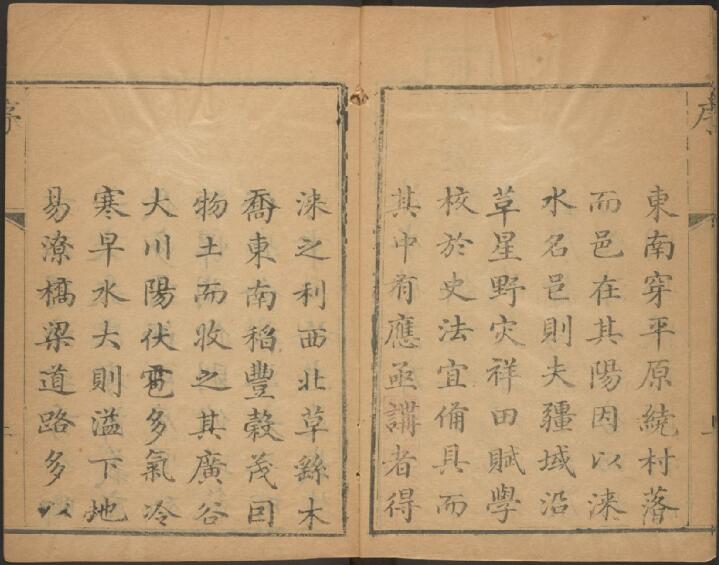 東南穿平原繞村落
而邑在其陽因以淶
水名邑則夫疆域沿
草星野灾祥田賦學
校於史法宜俻具而
其中有應亟講者得
淶之利西北草繇木
喬東南稻豐榖茂因
物土而收之其廣谷
大川陽伏雹多氣冷
寒早水大則溢下地
易潦橋梁道路多以
序
序